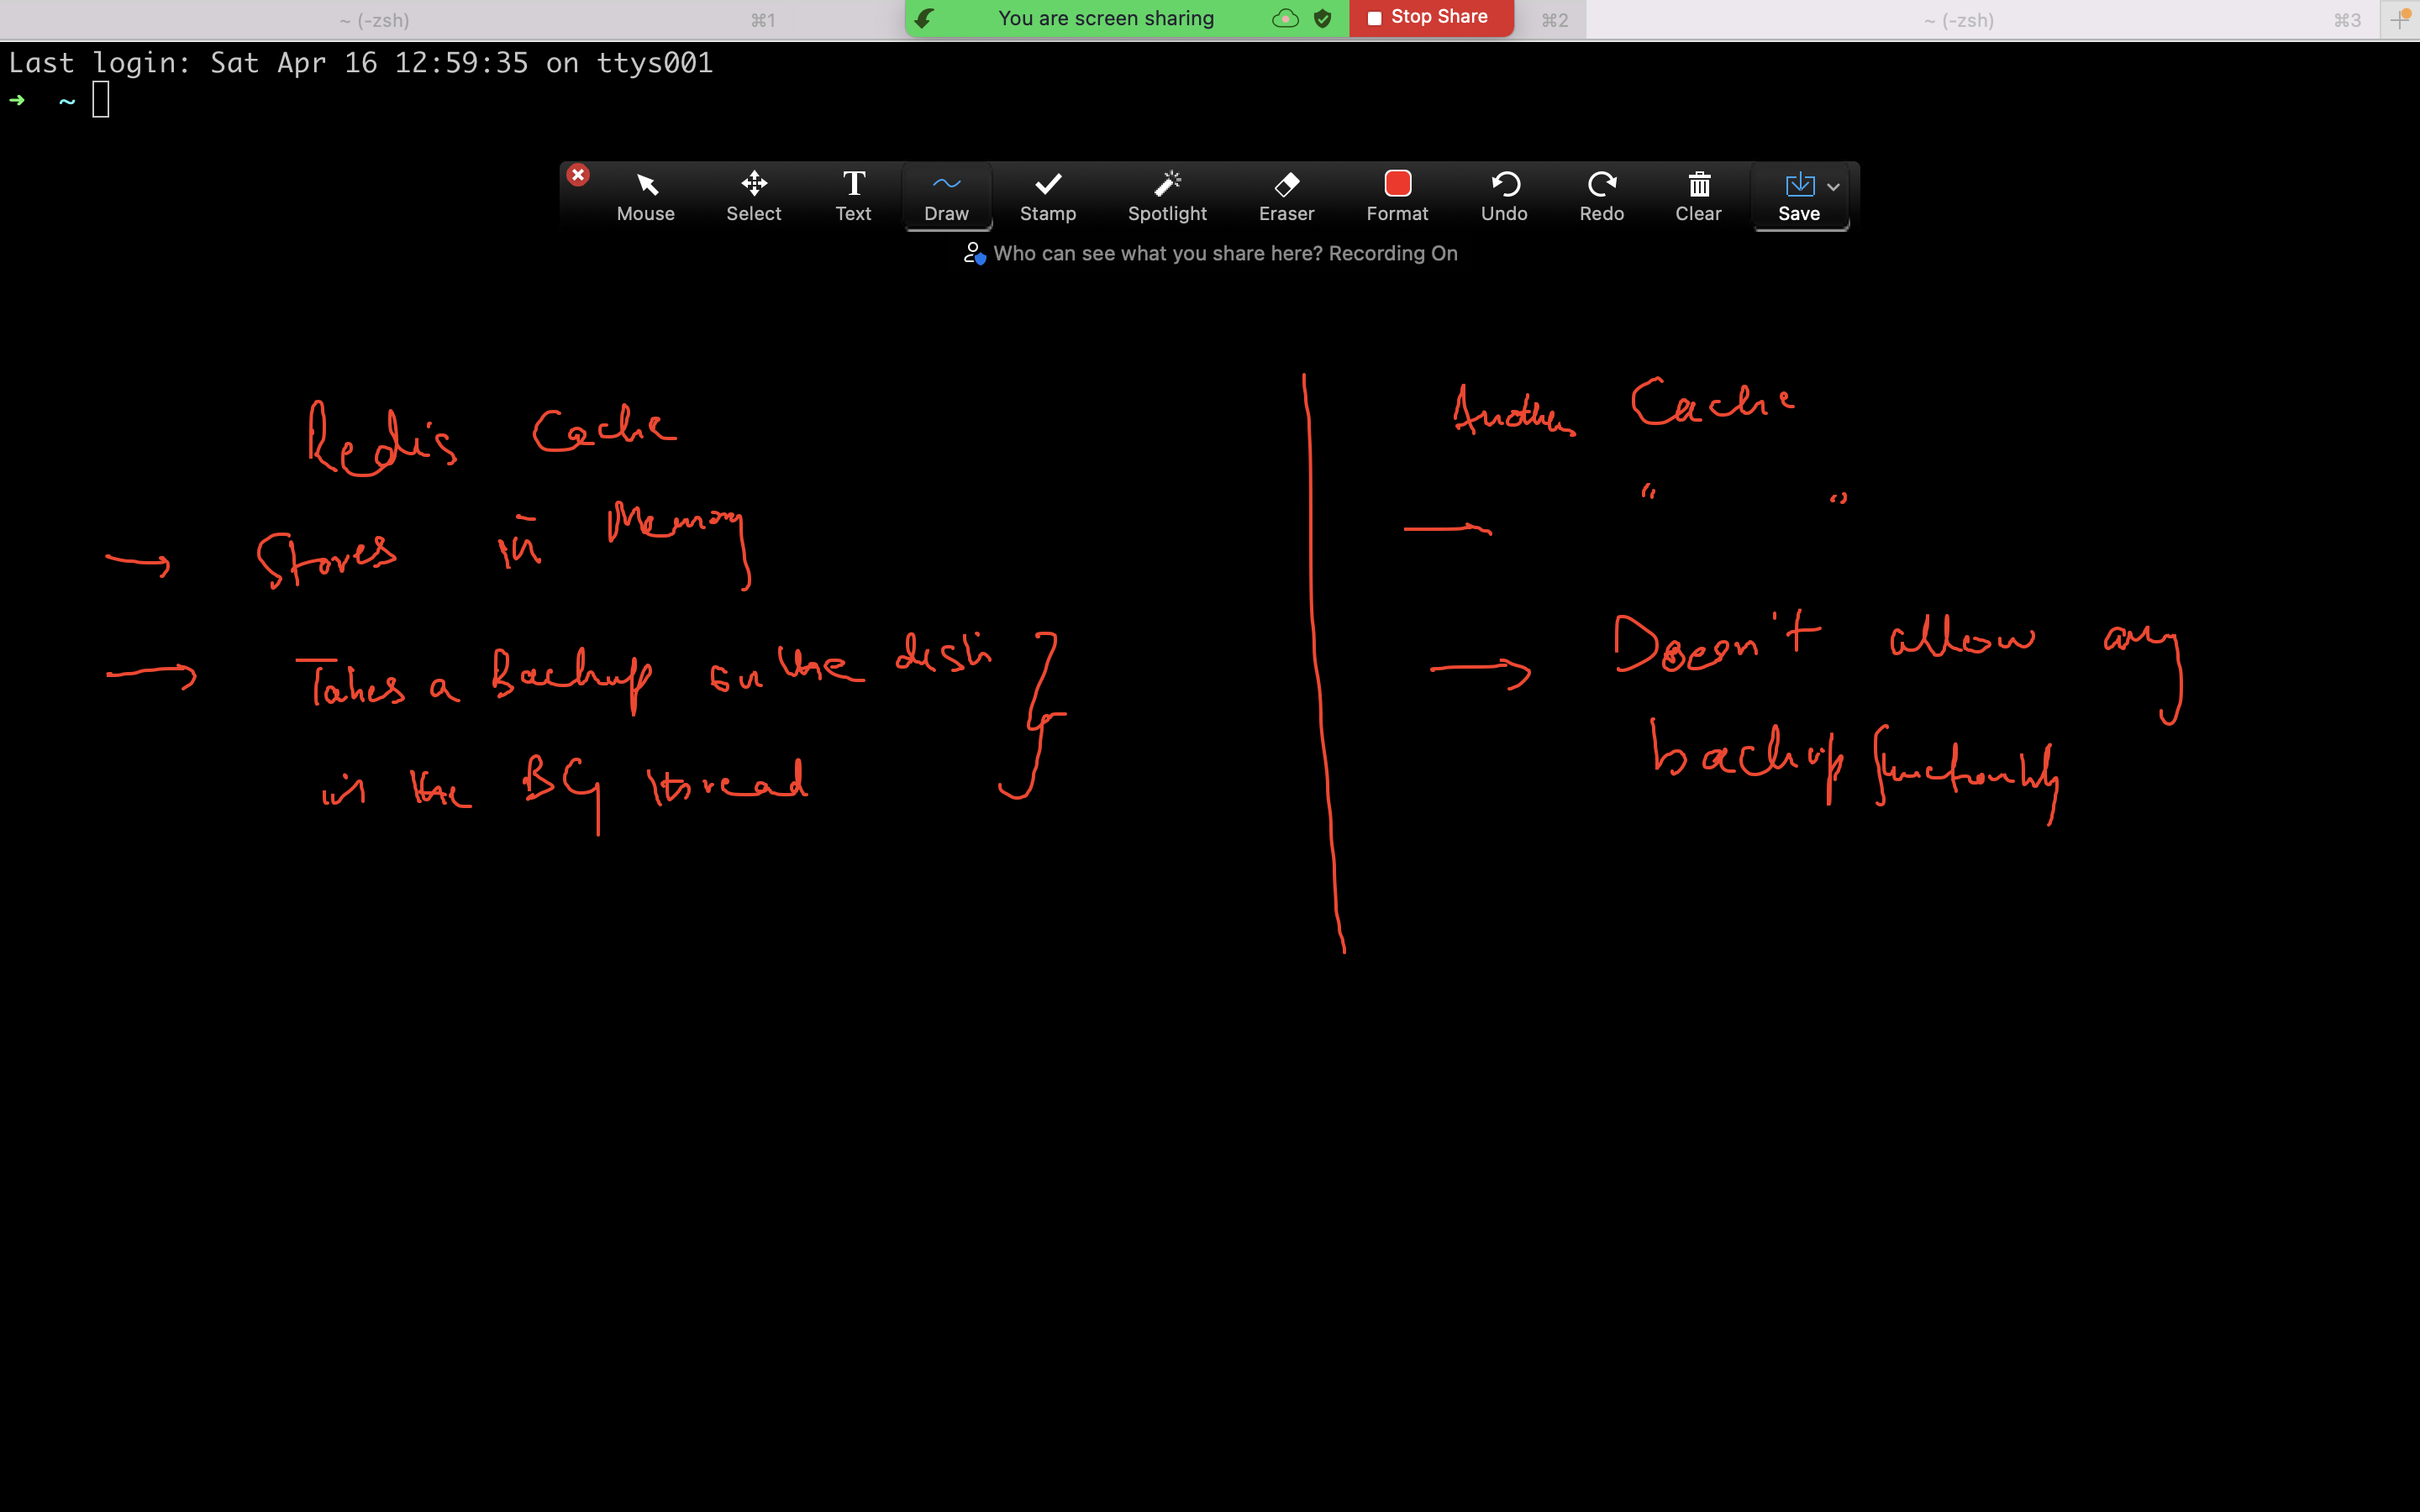 ~ (-zsh) ⌘1 You are screen sharing Stop Share ⌘2 ~ (-zsh) ⌘3
Last login: Sat Apr 16 12:59:35 on ttys001
➜ ~
Mouse Select Text Draw Stamp Spotlight Eraser Format Undo Redo Clear Save
Who can see what you share here? Recording On
Redis Cache
→ Stores in Memory
→ Takes a Backup on the disk
in the BG thread
Another Cache
→ " "
→ Doesn't allow any
backup functionality